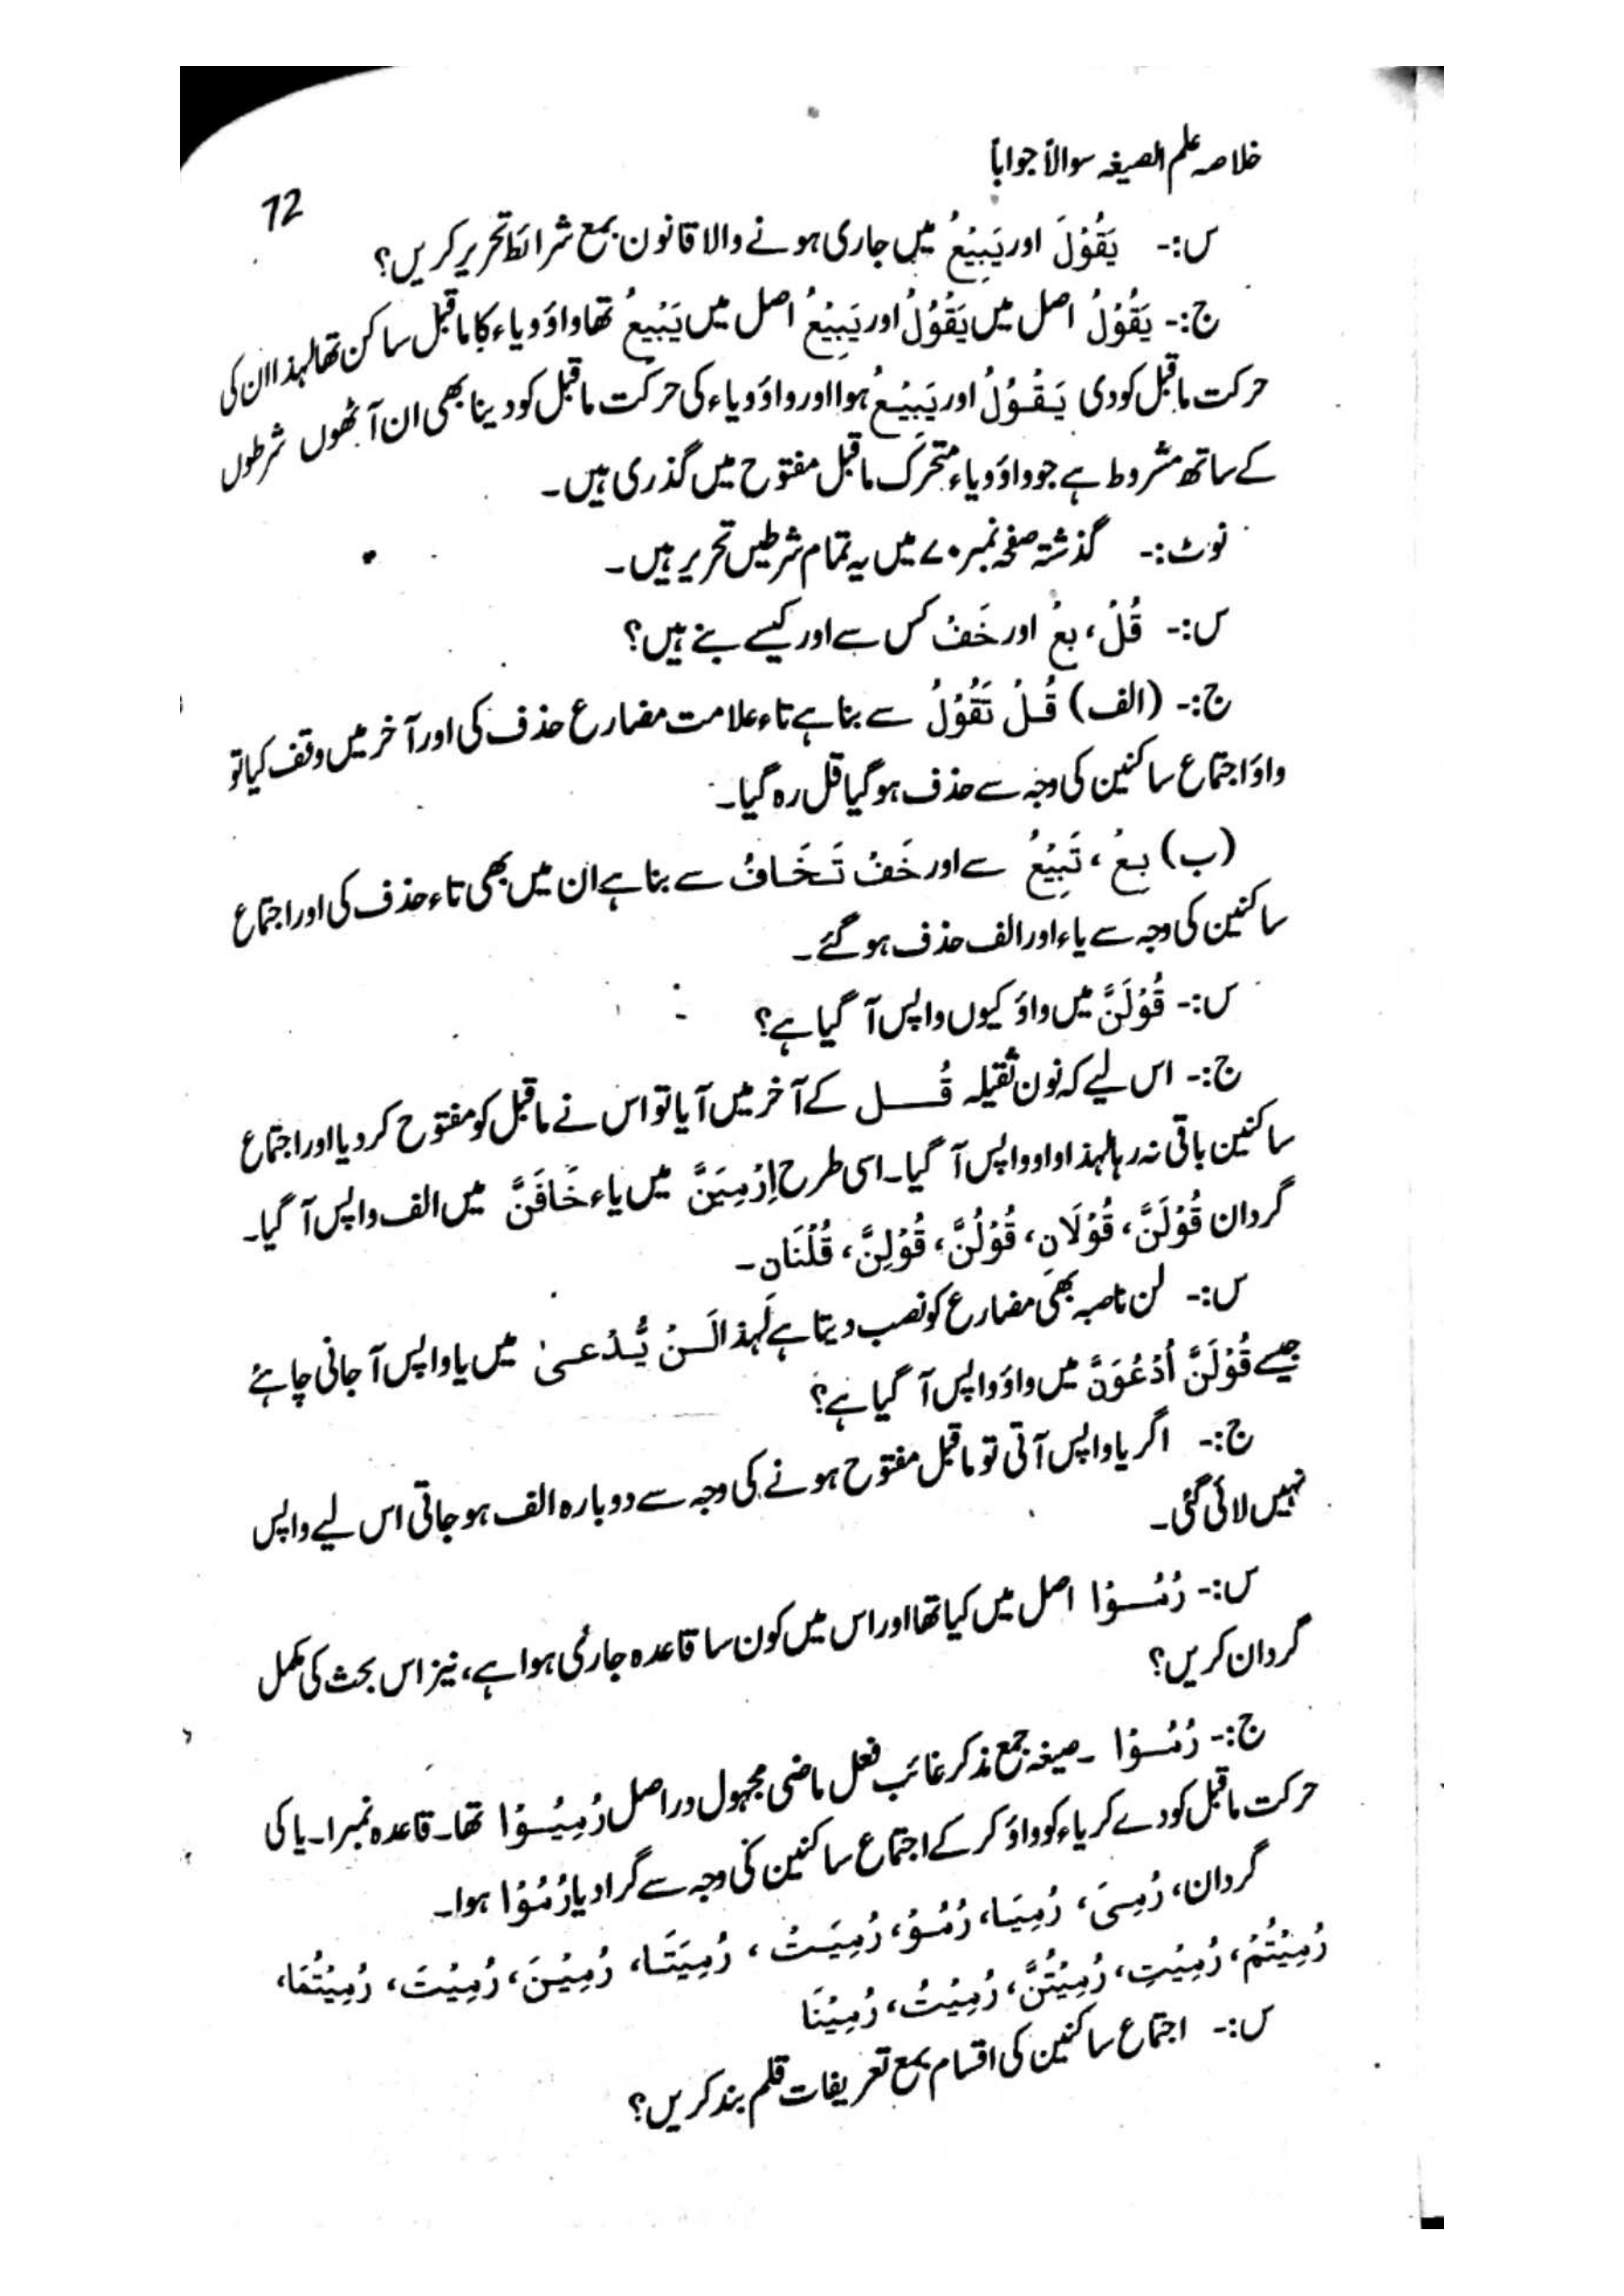 خلاصہ علم الصیغہ سوالاً جواباً
72
س:- یَقُوْلَ اور یَبِیْعُ میں جاری ہونے والا قانون بمع شرائط تحریر کریں؟
ج:- یَقُوْلُ اصل میں یَقْوُلُ اور یَبِیْعُ اصل میں یَبْیِعُ تھا واؤ ویاء کا ماقبل ساکن تھا لہذا ان کی
حرکت ماقبل کو دی یَقُوْلُ اور یَبِیْعُ ہوا اور واؤ ویاء کی حرکت ماقبل کو دینا بھی ان آٹھوں شرطوں
کے ساتھ مشروط ہے جو واؤ ویاء متحرک ماقبل مفتوح میں گذری ہیں۔
نوٹ:- گذشتہ صفحہ نمبر ۷۰ میں یہ تمام شرطیں تحریر ہیں۔
س:- قُلْ، بِعْ اور خَفْ کس سے اور کیسے بنے ہیں؟
ج:- (الف) قُلْ تَقُوْلُ سے بنا ہے تاء علامت مضارع حذف کی اور آخر میں وقف کیا تو
واؤ اجتماع ساکنین کی وجہ سے حذف ہو گیا قل رہ گیا۔
(ب) بِعْ، تَبِیْعُ سے اور خَفْ تَخَافُ سے بنا ہے ان میں بھی تاء حذف کی اور اجتماع
ساکنین کی وجہ سے یاء اور الف حذف ہو گئے۔
س:- قُوْلَنَّ میں واؤ کیوں واپس آ گیا ہے؟
ج:- اس لیے کہ نون ثقیلہ قُل کے آخر میں آیا تو اس نے ماقبل کو مفتوح کر دیا اور اجتماع
ساکنین باقی نہ رہا لہذا واو واپس آ گیا۔ اسی طرح اِرْمِیَنَّ میں یاء خَافَنَّ میں الف واپس آ گیا۔
گردان قُوْلَنَّ، قُوْلَانِ، قُوْلُنَّ، قُوْلِنَّ، قُلْنَانِ۔
س:- لن ناصبہ بھی مضارع کو نصب دیتا ہے لہذا لَنْ یُّدْعیٰ میں یا واپس آ جانی چاہئے
جیسے قُوْلَنَّ اُدْعُوَنَّ میں واؤ واپس آ گیا ہے؟
ج:- اگر یا واپس آتی تو ماقبل مفتوح ہونے کی وجہ سے دوبارہ الف ہو جاتی اس لیے واپس
نہیں لائی گئی۔
س:- رُمُوْا اصل میں کیا تھا اور اس میں کون سا قاعدہ جاری ہوا ہے، نیز اس بحث کی مکمل
گردان کریں؟
ج:- رُمُوْا ۔ صیغہ جمع مذکر غائب فعل ماضی مجہول دراصل رُمِیُوْا تھا۔ قاعدہ نمبر۱۔ یا کی
حرکت ماقبل کو دے کر یاء کو واؤ کر کے اجتماع ساکنین کی وجہ سے گرا دیا رُمُوْا ہوا۔
گردان، رُمِیَ، رُمِیَا، رُمُوْ، رُمِیَتْ، رُمِیَتَا، رُمِیْنَ، رُمِیْتَ، رُمِیْتُمَا،
رُمِیْتُمْ، رُمِیْتِ، رُمِیْتُنَّ، رُمِیْتُ، رُمِیْنَا
س:- اجتماع ساکنین کی اقسام بمع تعریفات قلم بند کریں؟